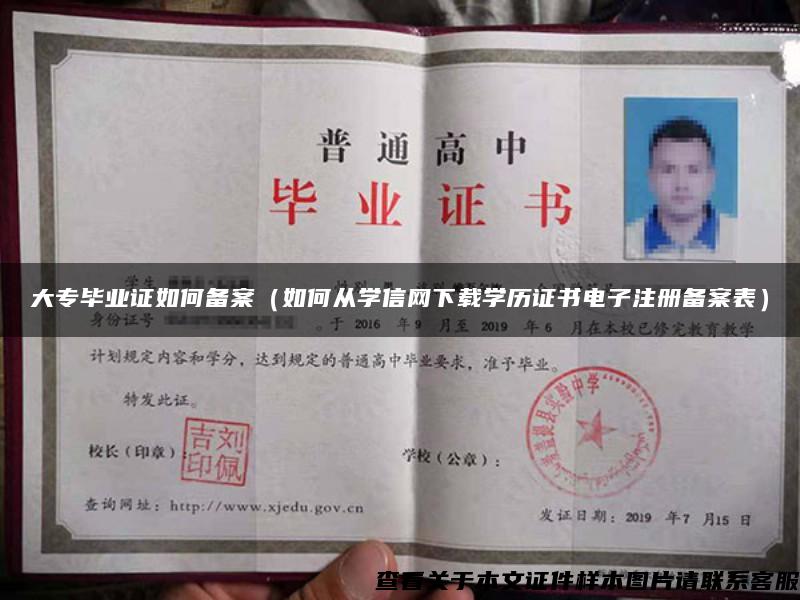 普通高中
毕业证书
学生
大专毕业证如何备案（如何从学信网下载学历证书电子注册备案表）
身份证号 。于 2016 年 9 月至 2019 年 6 月在本校已修完教育教学
计划规定内容和学分，达到规定的普通高中毕业要求，准予毕业。
特发此证。
校长（印章）：
吉刘
印佩
学校（公章）：
县实验中学
查询网址：http://www.xjedu.gov.cn
发证日期：2019 年7 月15 日
查看关于本文证件样本图片请联系客服